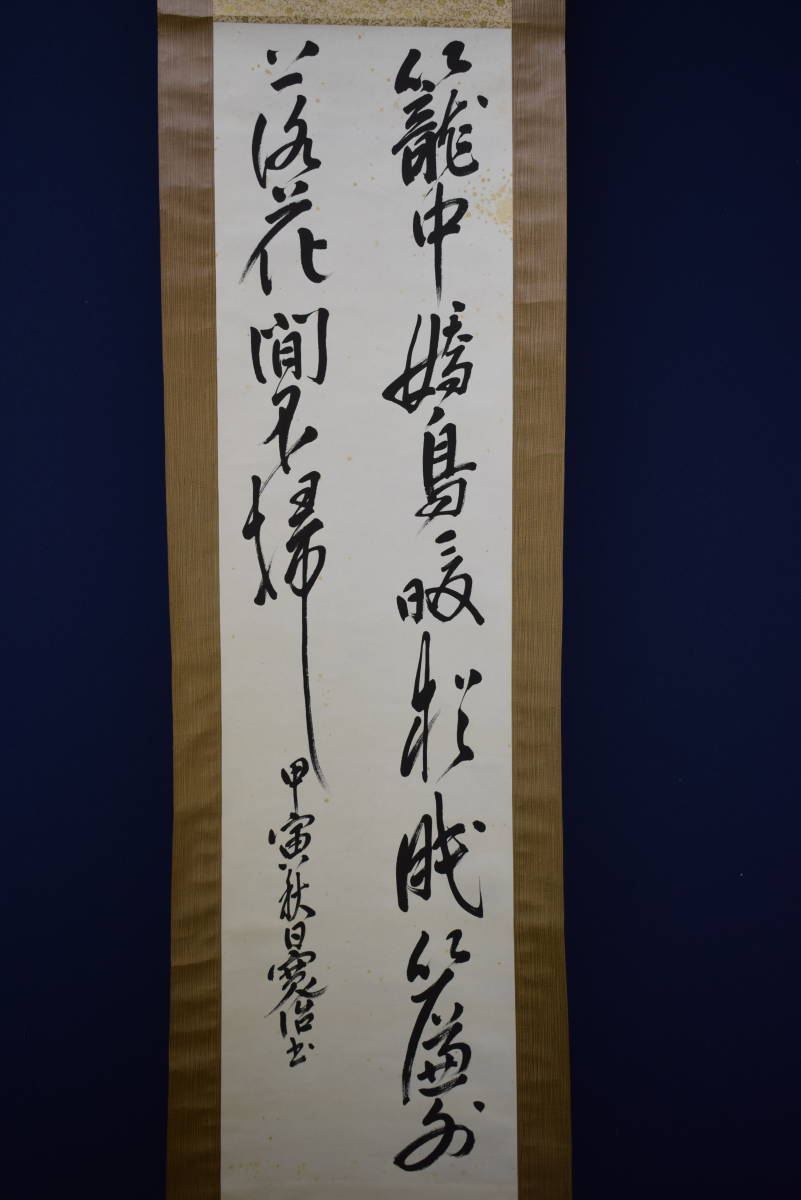 籠中嬌鳥暖猶睡簾外
落花閒不掃
甲寅秋日寛治書